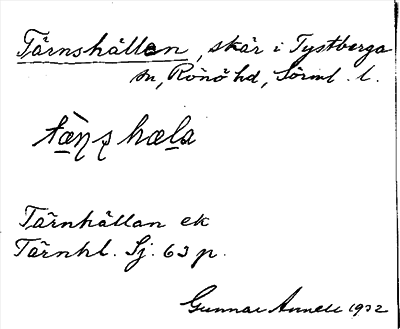 Tärnshällen, skär i Tystberga
sn, Rönö hd, Sörml. l.
Tärnhällan ek
Tärnhl. Sj. 63 p.
Gunnar Annell 1932